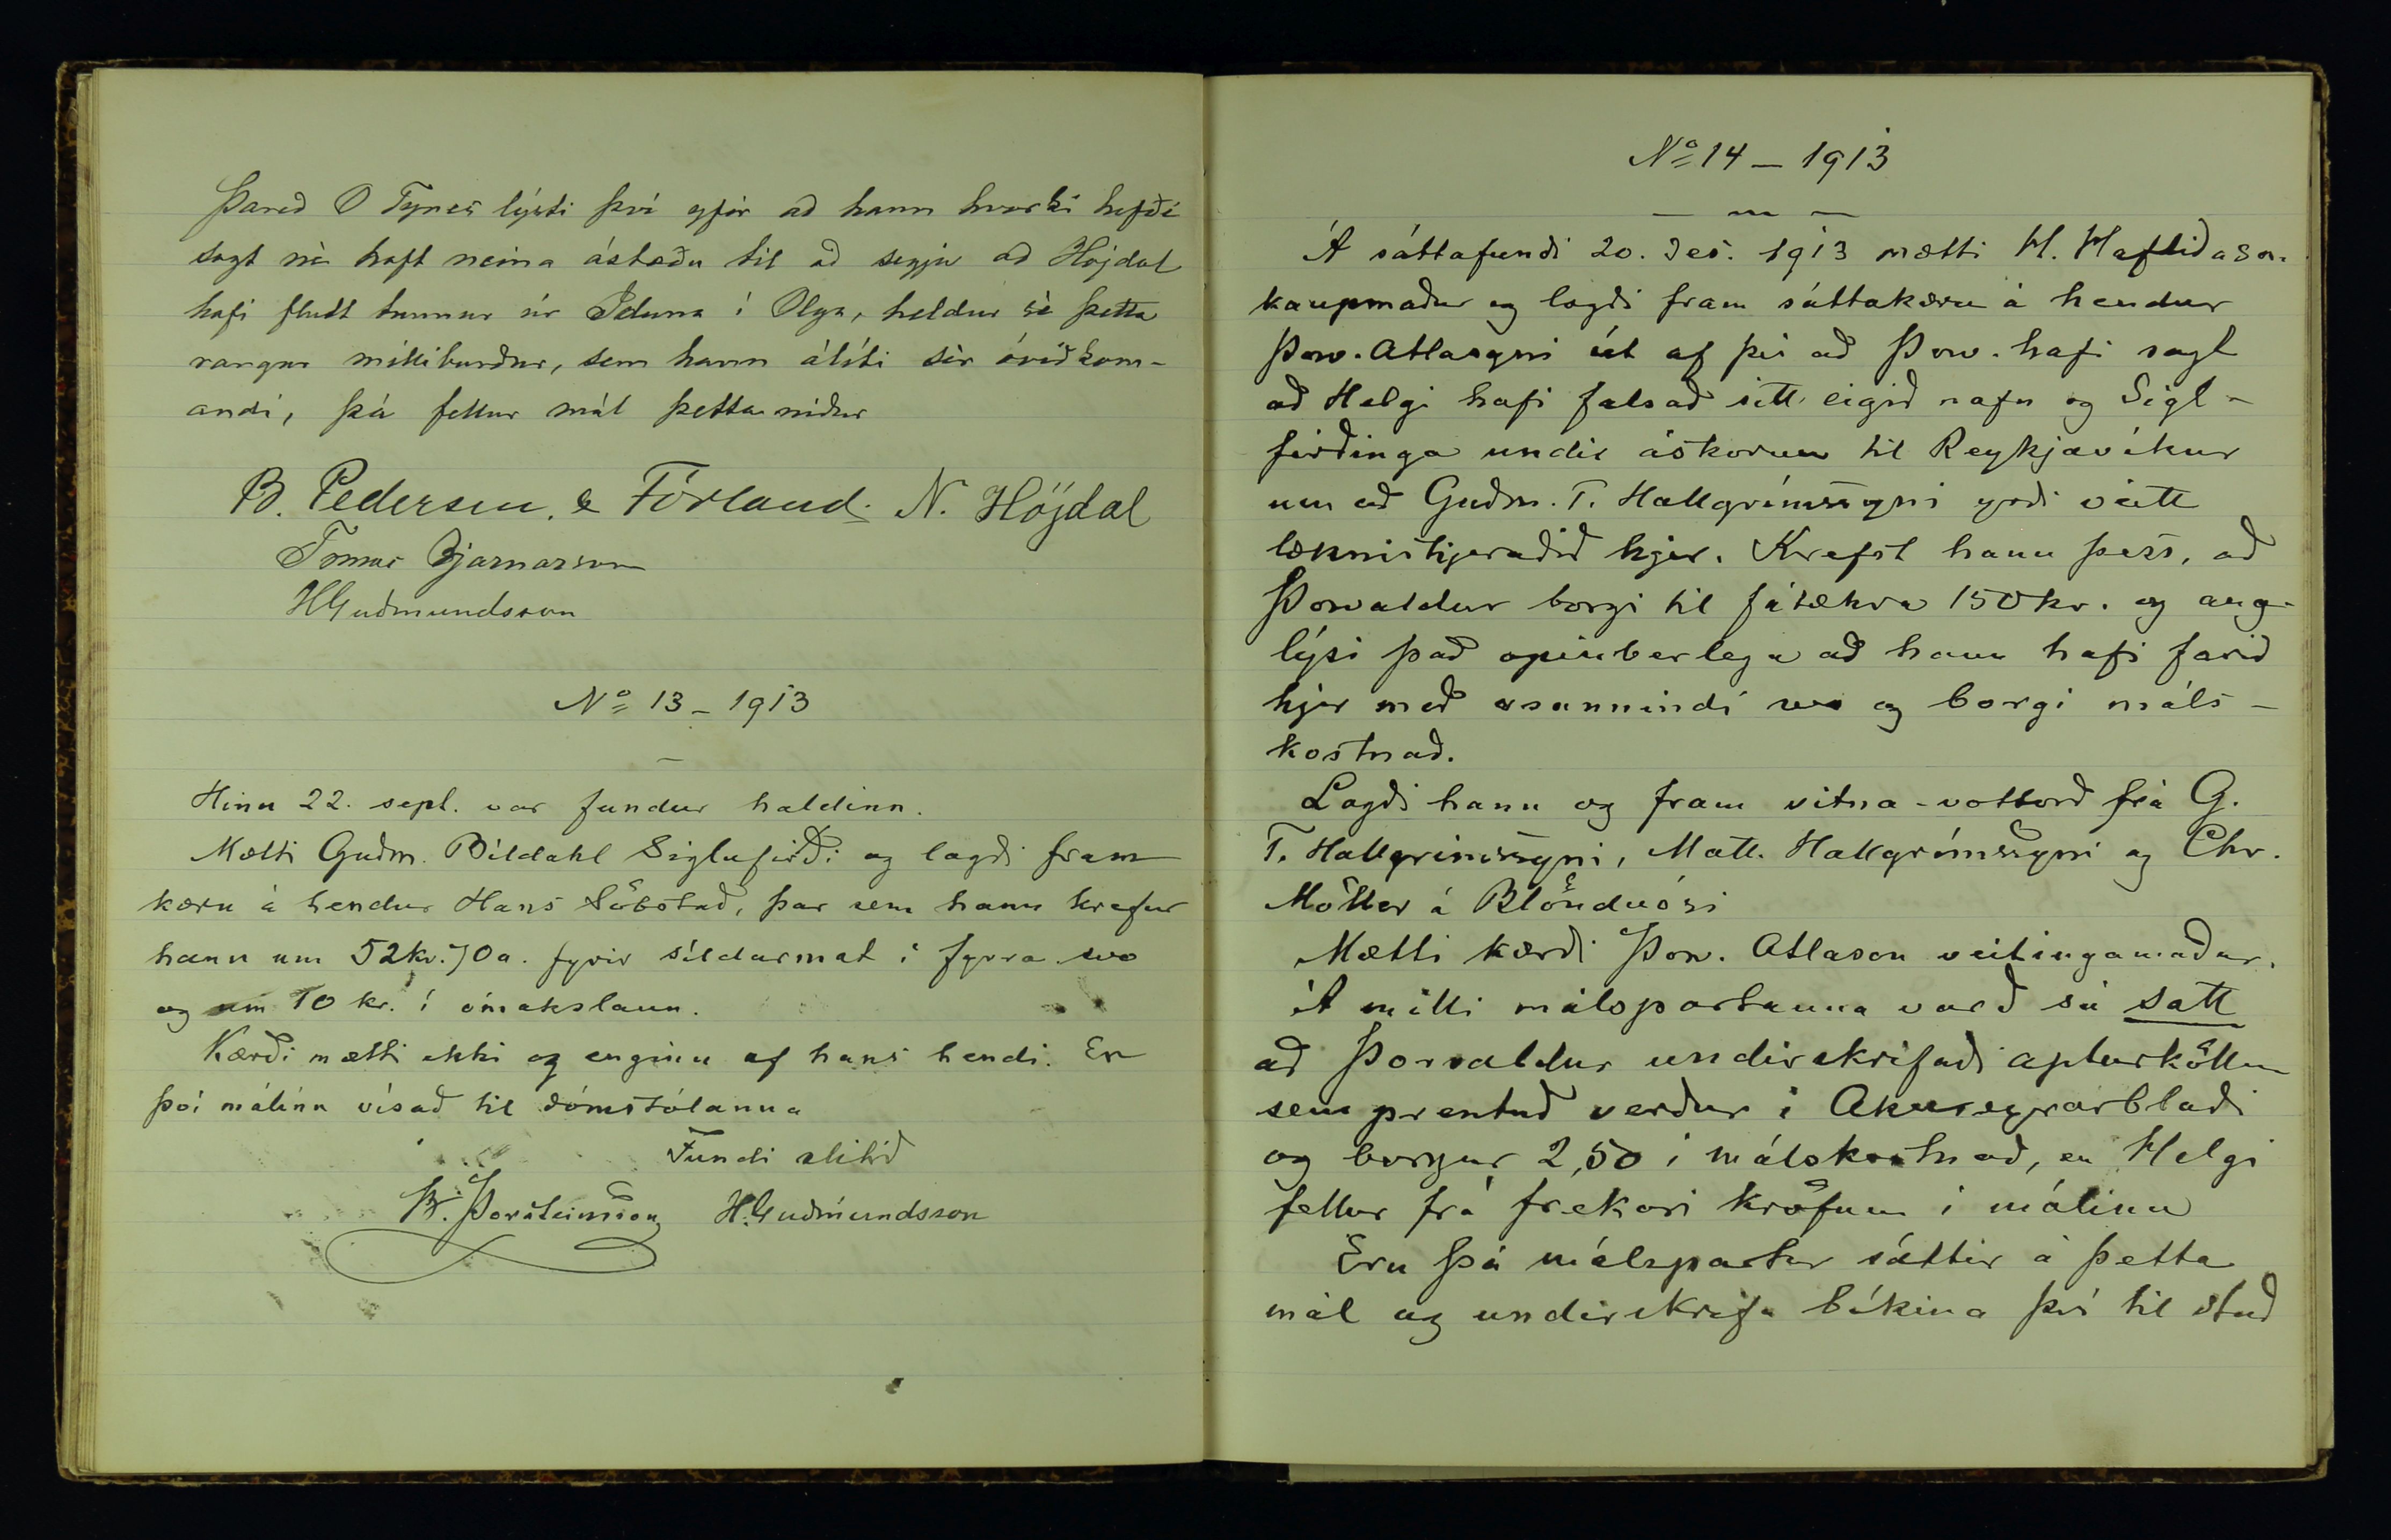 Þareð O Tynes lýsti því yfir að hann hvorki hefði
sagt nè haft neina ástæðu til að segja að Höjdal
hafi flutt tunnur úr Iduna í Olga, heldur sè þetta
rangur milliburður, sem hann álíti sèr óviðkom-
andi, þá fellur mál þetta niður
B. Pedersen. & Förland. N. Höjdal
Tómas Bjarnarson
HGuðmundsson
No 13 – 1913
Hinn 22. sept. var fundur haldinn.
Mætti Guðm. Bíldahl Siglufirði og lagði fram
kæru á hendur Hans Söbstað, þar sem hann krefur
hann um 52 kr. 70 a. fyrir síldarmat í fyrra svo
og um 10 kr. í ómakslaun.
Kærði mætti ekki og enginn af hans hendi. Er
því málinu vísað til dómstólanna
Fundi slitið
B. Þorsteinsson H.Guðmundsson
No 14 – 1913
Á sáttafundi 20. des. 1913 mætti H. Hafliðason
kaupmaður og lagði fram sáttakæru á hendur
Þorv. Atlasyni út af því að Þorv. hafi sagt
að Helgi hafi falsað sitt eigið nafn og Sigl-
firðinga undir áskorun til Reykjavíkur
um að Guðm. T. Hallgrímssyni yrði veitt
læknishjeraðið hjer. Krefst hann þess, að
Þorvaldur borgi til fátækra 150 kr. og aug-
lýsi það opinberlega að hann hafi farið
hjer með ósannindi og borgi máls-
kostnað.
Lagði hann og fram vitna-vottorð frá G.
T. Hallgrímssyni, Matt. Hallgrímssyni og Chr.
Möller á Blönduósi
Mætti kærði Þorv. Atlason veitingamaður.
Á milli málspartanna varð sú sátt
að Þorvaldur undirskrifaði apturköllun
sem prentuð verður í Akureyrarblaði
og borgur 2,50 í málskostnað, en Helgi
fellur frá frekari kröfum í málinu
Eru þá málspartar sáttir á þetta
mál og undirskrifa bókina því til stað